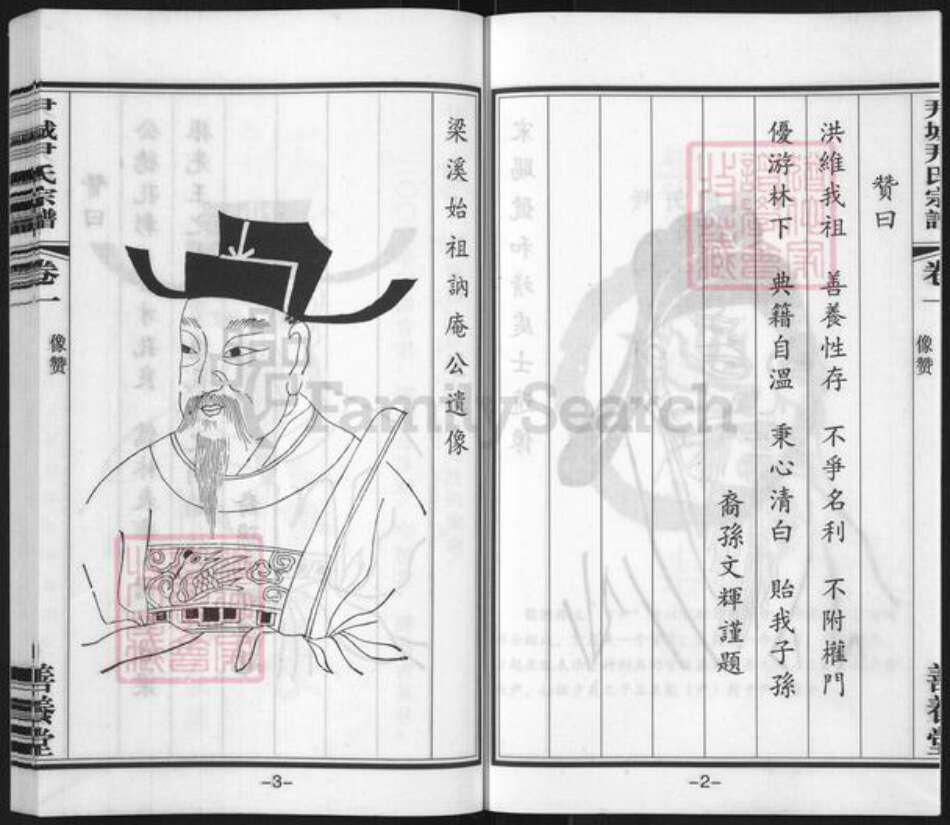 尹城尹氏宗譜
卷一
像赞
善養堂
赞曰
洪維我祖 善養性存 不爭名利 不附權門
優游林下 典籍自溫 秉心清白 貽我子孫
裔孫文輝謹題
-2-
梁溪始祖訥庵公遺像
尹城尹氏宗譜
卷一
像赞
善養堂
-3-
FamilySearch